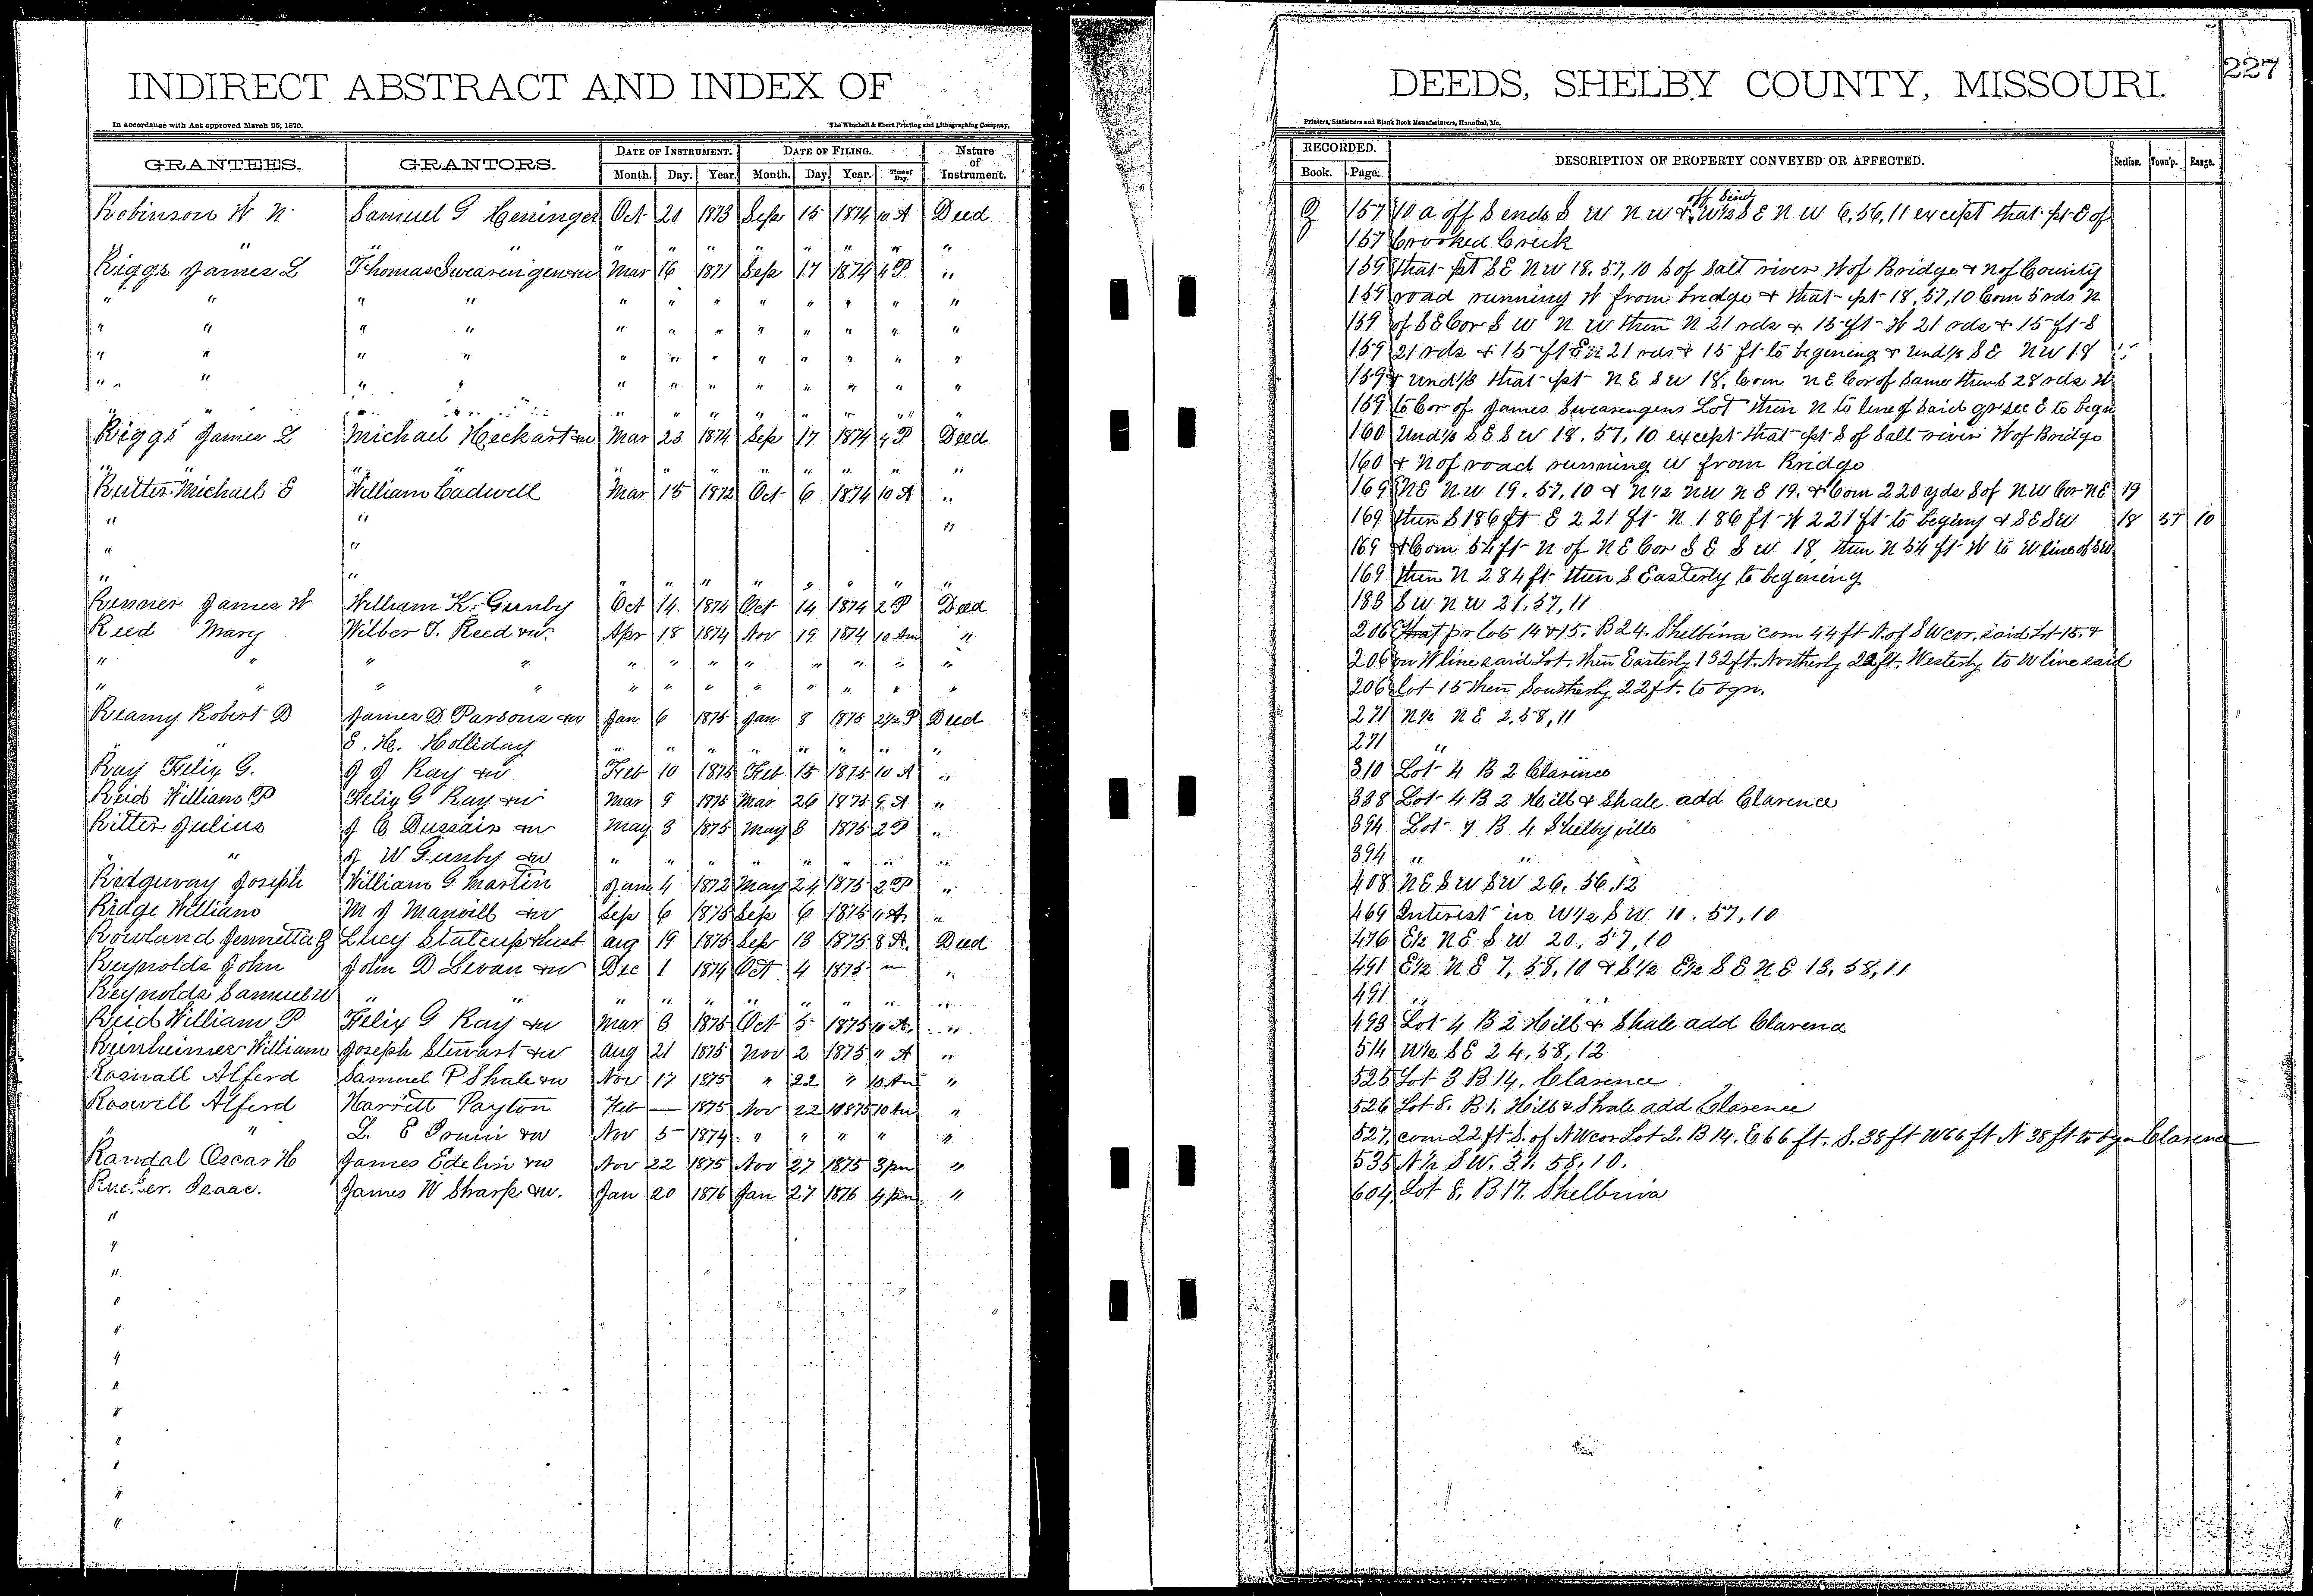 227
INDIRECT ABSTRACT AND INDEX OF DEEDS, SHELBY COUNTY, MISSOURI.
In accordance with Act approved March 25, 1870. The Winchell & Ebert Printing and Lithographing Company, Printers, Stationers and Blank Book Manufacturers, Hannibal, Mo.
GRANTEES. GRANTORS. DATE OF INSTRUMENT. DATE OF FILING. Nature of Instrument. RECORDED. DESCRIPTION OF PROPERTY CONVEYED OR AFFECTED. Section. Town'p. Range.
Month. Day. Year. Month. Day. Year. Time of Day. Book. Page.
off Send
Robinson W N Samuel G Heninger Oct 20 1873 Sep 15 1874 10 A Deed Q 157 10 a off S ends S W N W & W1/2 S E N W 6, 56, 11 except that pt E of
" " " " " " " " " 157 Crooked Creek
Riggs James L Thomas Swearingen &w Mar 16 1871 Sep 17 1874 4 P " 159 that pt S E N W 18, 57, 10 S of Salt river W of Bridge & N of County
" " " " " " " " " " " " 159 road running W from bridge & that pt 18, 57, 10 Com 5 rds N
" " " " " " " " " " " " 159 of S E Cor S W N W then N 21 rds & 15 ft W 21 rds & 15 ft S
" " " " " " " " " " " " 159 21 rds & 15 ft E 21 rds & 15 ft to begening & Und 1/3 S E N W 18
" " " " " " " " " " " " 159 & Und 1/3 that pt N E S W 18, Com N E Cor of Same then S 28 rds W
" " " " " " " " " " 159 to Cor of James Swearengens Lot then N to line of Said qr sec E to begn
Riggs James L Michael Heckart &w Mar 23 1874 Sep 17 1874 4 P Deed 160 Und 1/3 S E S W 18, 57, 10 except that pt S of Salt river W of Bridge
" " " " " " " " " " 160 & N of road running W from Bridge
Rutter Michael E William Cadwell Mar 15 1872 Oct 6 1874 10 A " 169 NE N W 19, 57, 10 & N 1/2 NW N E 19, & Com 220 yds S of N W Cor NE 19
" " " 169 then S 186 ft E 221 ft N 186 ft W 221 ft to begeng & S E SW 18 57 10
" " 169 & Com 54 ft N of N E Cor S E S W 18 then N 54 ft W to W line of SW
" " " " " " " " " " 169 then N 284 ft then S Easterly to begening
Renner James W William K. Gunby Oct 14 1874 Oct 14 1874 2 P Deed 183 S W N W 21, 57, 11
Reed Mary Wilber T. Reed &w. Apr 18 1874 Nov 19 1874 10 Am " 206 that pr lots 14 & 15, B 24, Shelbina com 44 ft N. of S W cor. said Lot 15. &
" " " " " " " " " " " " 206 on W line said Lot, then Easterly 132 ft. Northerly 22 ft. Westerly to W line said
" " " " " " " " " " " " 206 lot 15 then Southerly 22 ft. to bgn.
Reamy Robert D James D Parsons &w Jan 6 1875 Jan 8 1875 2 1/2 P Deed 271 N1/2 N E 2, 58, 11
" E. H. Holliday " " " " " " " " 271 "
Ray Felix G. J J Ray &w Feb 10 1875 Feb 15 1875 10 A " 310 Lot 4 B 2 Clarence
Reid William P Felix G Ray &w Mar 9 1875 Mar 26 1875 9 A " 338 Lot 4 B 2 Hill & Shale add Clarence
Ritter Julius J C Dussair &w May 3 1875 May 8 1875 2 P " 394 Lot 9 B 4 Shelbyville
" J W Gunby &w " " " " " " " " 394 " "
Ridgeway Joseph William G Martin June 4 1872 May 24 1875 2 P " 408 N E S W S W 26, 56, 12
Ridge William M J Manvill &w Sep 6 1875 Sep 6 1875 11 A. " 469 Interest in W1/2 S W 10, 57, 10
Rowland Jennetta G Lucy Stalcup & hust Aug 19 1875 Sep 13 1875 8 A. Deed 476 E1/2 N E S W 20, 57, 10
Reynolds John John D Levan &w Dec 1 1874 Oct 4 1875 " " 491 E1/2 N E 7, 58, 10 & S1/2 E1/2 S E N E 13, 58, 11
Reynolds Samuel W " " " " " " " " " " 491 "
Reid William P Felix G Ray &w Mar 8 1875 Oct 5 1875 10 A. " 493 Lot 4 B 2 Hill & Shale add Clarence
Reinheimer William Joseph Stewart &w Aug 21 1875 Nov 2 1875 11 A " 514 W1/2 S E 24, 58, 12
Rosnall Alferd Samuel P Shale &w Nov 17 1875 " 22 " 10 Am " 525 Lot 3 B 14, Clarence
Roswell Alferd Harriett Payton Feb — 1875 Nov 22 10875 10 Am " 526 Lot 8. B 1. Hill & Shale add Clarence
" L. E Irwin &w Nov 5 1874 " " " " " 527 com 22 ft S. of N W cor Lot 2. B 14. E 66 ft. S. 38 ft W 66 ft N 38 ft to bgn Clarence
Randal Oscar H James Edelin &w Nov 22 1875 Nov 27 1875 3 pm " 535 N1/2 S W. 31. 58. 10.
Isaac. James W Sharp &w. Jan 20 1876 Jan 27 1876 4 pm " 604 Lot 8. B 17. Shelbina
"
"
"
"
"
"
"
"
"
"
"
"